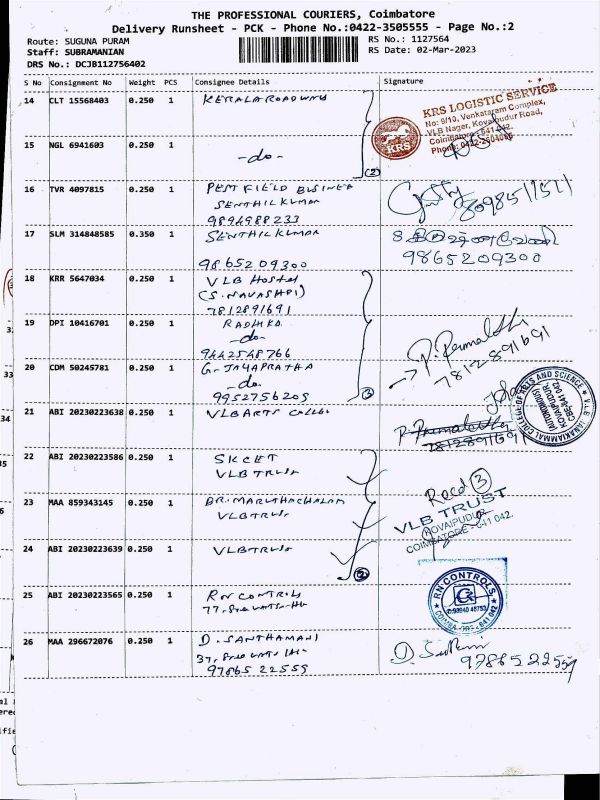 THE PROFESSIONAL COURIERS, Coimbatore
Delivery Runsheet - PCK - Phone No.:0422-3505555 - Page No.:2
Route: SUGUNA PURAM
RS No.: 1127564
Staff: SUBRAMANIAN
RS Date: 02-Mar-2023
DRS No.: DCJB112756402
S No Consignment No Weight PCS Consignee Details Signature
14 CLT 15568403 0.250 1 KERALA ROADWAYS
KRS LOGISTIC SERVICE
No: 9/10, Venkataram Complex,
VLB Nager, Kovaipudur Road,
Coimbatore - 641 042.
KRS
15 NGL 6941603 0.250 1 -do-
(2)
16 TVR 4097815 0.250 1 PEST FIELD BUSINES
SENTHIL KUMAR
9894988233
17 SLM 314848585 0.350 1 SENTHIL KUMAR
9865209300
9865209300
18 KRR 5647034 0.250 1 VLB Hostel
7812891691
19 DPI 10416701 0.250 1 RADHIKA
-do-
9442548766
7812891691
20 CDM 50245781 0.250 1 G. JAYAPRATHA
-do-
9952756205
3
21 ABI 20230223638 0.250 1 VLB ARTS COLLEGE
7812891691
22 ABI 20230223586 0.250 1 SKCET
VLB TRUST
23 MAA 859343145 0.250 1 DR. MARUTHACHALAM
VLB TRUST
Recd 3
VLB TRUST
KOVAIPUDUR
COIMBATORE - 641 042.
24 ABI 20230223639 0.250 1 VLB TRUST
25 ABI 20230223565 0.250 1 RN CONTROLS
RN CONTROLS
26 MAA 296672076 0.250 1 D. SANTHAMANI
97865 22559
9786522559